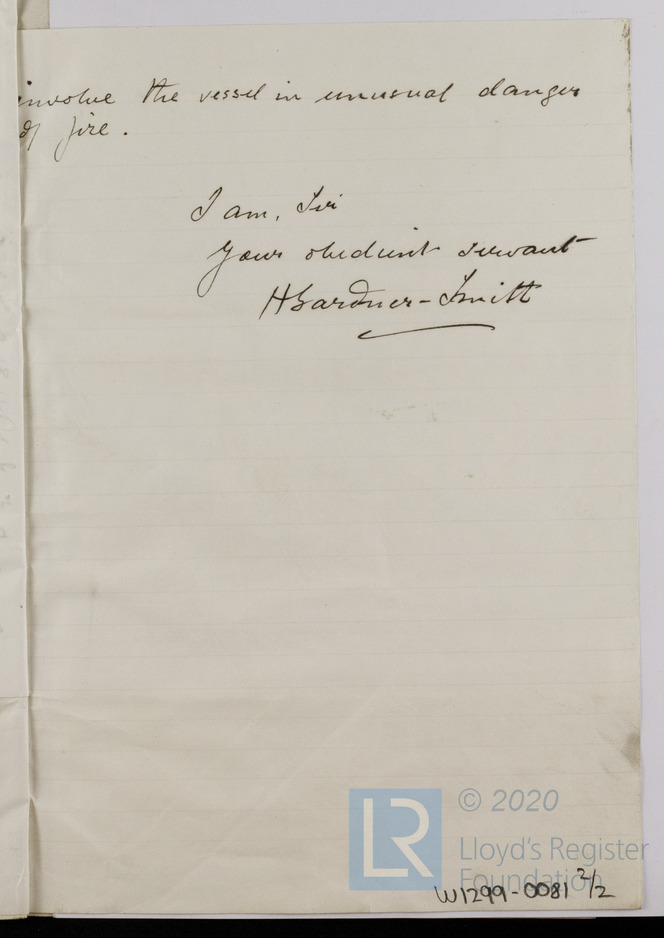 involve the vessel in unusual danger
of fire.
I am, Sir
Your obedient servant
HGardner-Smith
LR
© 2020
Lloyd's Register
Foundation
W1299-0081 2/2